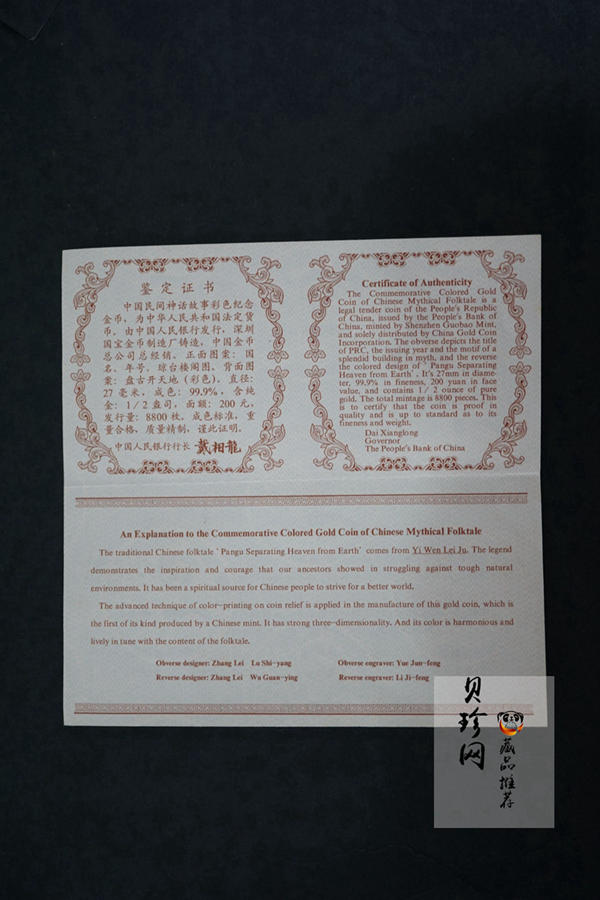 鉴定证书
中国民间神话故事彩色纪念
金币，为中华人民共和国法定货
币。由中国人民银行发行，深圳
国宝金币制造厂铸造，中国金币
总公司总经销。正面图案：国
名、年号、琼台楼阁图。背面图
案：盘古开天地（彩色）。直径：
27毫米，成色：99.9%，含纯
金：1/2盎司，面额：200元，
发行量：8800枚。成色标准，重
量合格，质量精制，谨此证明。
中国人民银行行长 戴相龍
Certificate of Authenticity
The Commemorative Colored Gold
Coin of Chinese Mythical Folktale is a
legal tender coin of the People's Republic
of China, issued by the People's Bank of
China, minted by Shenzhen Guobao Mint,
and solely distributed by China Gold Coin
Incorporation. The obverse depicts the title
of PRC, the issuing year and the motif of a
splendid building in myth, and the reverse
the colored design of ‘Pangu Separating
Heaven from Earth’. It's 27mm in diame-
ter, 99.9% in fineness, 200 yuan in face
value, and contains 1/2 ounce of pure
gold. The total mintage is 8800 pieces. This
is to certify that the coin is proof in
quality and is up to standard as to its
fineness and weight.
Dai Xianglong
Governor
The People's Bank of China
An Explanation to the Commemorative Colored Gold Coin of Chinese Mythical Folktale
The traditional Chinese folktale ‘Pangu Separating Heaven from Earth’ comes from Yi Wen Lei Ju. The legend
demonstrates the inspiration and courage that our ancestors showed in struggling against tough natural
environments. It has been a spiritual source for Chinese people to strive for a better world.
The advanced technique of color-printing on coin relief is applied in the manufacture of this gold coin, which is
the first of its kind produced by a Chinese mint. It has strong three-dimensionality. And its color is harmonious and
lively in tune with the content of the folktale.
Obverse designer: Zhang Lei Lu Shi-yang
Obverse engraver: Yue Jun-feng
Reverse designer: Zhang Lei Wu Guan-ying
Reverse engraver: Li Ji-feng
贝珍网
藏品推荐